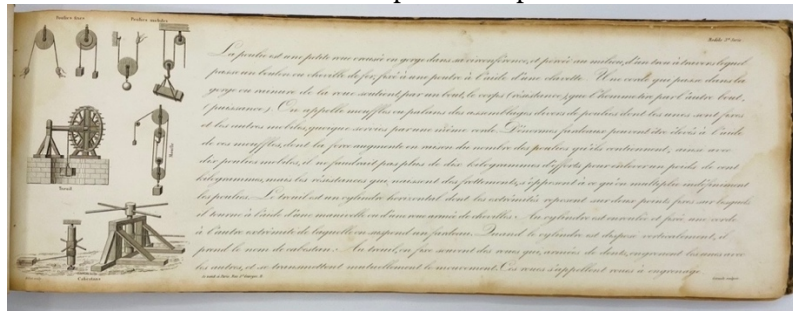 Poulies fixes
Poulies mobiles
Moufle
Treuil
Cabestan
La poulie est une petite roue creusée en gorge dans sa circonférence, et percée au milieu, d'un trou à travers lequel
passe un boulon ou cheville de fer, fixé à une poutre à l'aide d'une clavette. Une corde qui passe dans la
gorge ou rainure de la roue soutient, par un bout, le corps (résistance), que l'homme tire par l'autre bout,
(puissance). On appelle mouffles ou palans des assemblages divers de poulies dont les unes sont fixes
et les autres mobiles, quoique servies par une même corde. D'énormes fardeaux peuvent être élevés à l'aide
de ces mouffles, dont la force augmente en raison du nombre des poulies qu'ils contiennent, ainsi avec
dix poulies mobiles, il ne faudrait pas plus de dix kilogrammes d'efforts pour enlever un poids de cent
kilogrammes, mais les résistances qui naissent des frottements, s'opposent à ce qu'on multiplie indéfiniment
les poulies. Le treuil est un cylindre horizontal dont les extrémités reposent sur deux points fixes sur lesquels
il tourne à l'aide d'une manivelle ou d'une roue armée de chevilles. Au cylindre est enroulée et fixée une corde
à l'autre extrémité de laquelle on suspend un fardeau. Quand le cylindre est disposé verticalement, il
prend le nom de cabestan. Au treuil, on fixe souvent des roues qui, armées de dents, engrènent les unes avec
les autres, et se transmettent mutuellement le mouvement. Ces roues s'appellent roues à engrenage